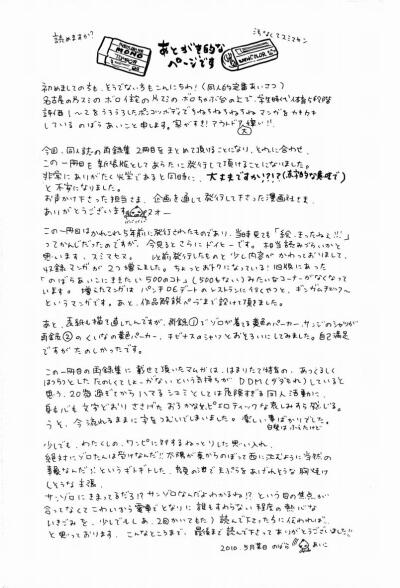 読めますか?
浅くてスミマセン
MONO
あとがき的な
ページです
初めましての方も、そうでない方もこんにちわ!(同人的定番あいさつ)
名古屋の片スミの ボロイ錠の片スミの ボロちゃぶ台の上で、学生時代体育5段階
評価 1〜2をうろうろしたポンコツボディでちねちねちねちねマンガをカキカキ
している のばらあいこと申します。家がすき!アウトドア嫌い!!
今回、同人誌の再録集 2冊目をまとめて頂けることになり、それに合わせ、
この一冊目も新装版としてあらたに発行して頂けることになりました。
非常にありがたい光栄であると同時に、大丈夫ですか!?!?(本格的な意味で)
と不安になりました。
お声かけ下さった担当さま、企画を通して発行して下さった漫画社さま、
ありがとうございます
この一冊目はかれこれ5年前に発行されたものであり、当時見ても「絵、古ったねぇ!!」
ってかんじだったのですが、今見るとさらにドイヒーです。相当読みづらいかと
思います、スミマセヌ。 以前発行したものと少し内容がかわっておりまして、
収録マンガが2つ増えました。ちょっとおトクになっている!旧版にあった
「のばらあいこにききたい500のコト」(500もない)みたいなコーナーがなくなって
います。増えたマンガは パンチDEデートのレストランに行くやつと、
というマンガです。あと、作品解説ページまで設けて頂きました。
あと、表紙も描き直したんですが、再録①でゾロが着てる黄色のパーカー、サンジのシャツが
再録②のくいなの黄色パーカー、チビナスのシャツとおそろいにしてみました。自己満足
ですがたのしかったです。
この一冊目の再録集に載せて頂いたマンガは、はまりたて特有の、あつくるしく
はつらつとした たのしくてしょーがない、という気持ちが DDM(ダダもれ)していると
思う、20歳過ぎてからハマるシュミとしては危険すぎる同人活動に、
身も心も文字どおりささげたおろかなるピエロティックな哀しみすら感じる。
うと、今 流れるままに字をつむいでしまいました。楽しい事ばかりでした。
少しでも、わたくしの、ワンピに対するねっとりした思い入れ、
絶対にゾロたんは受けなんだ!!太陽が東からのぼって西に沈むように当然の
事なんだ!!というギトギトした、
しそうな主張、
サンゾロにきまってるだろ!?サンゾロなんだよわかるね!?という目の焦点が
合ってなくてこわいから電車でとなりに誰もすわらない程度の熱心な
いきごみを、少しでも(しぁ、2回かいてもた)読んで下さった方に伝われば、
と思っております。こんなところまで、最後まで読んで下さってありがとうございました!!
2010.5月某日 のばら あいこ